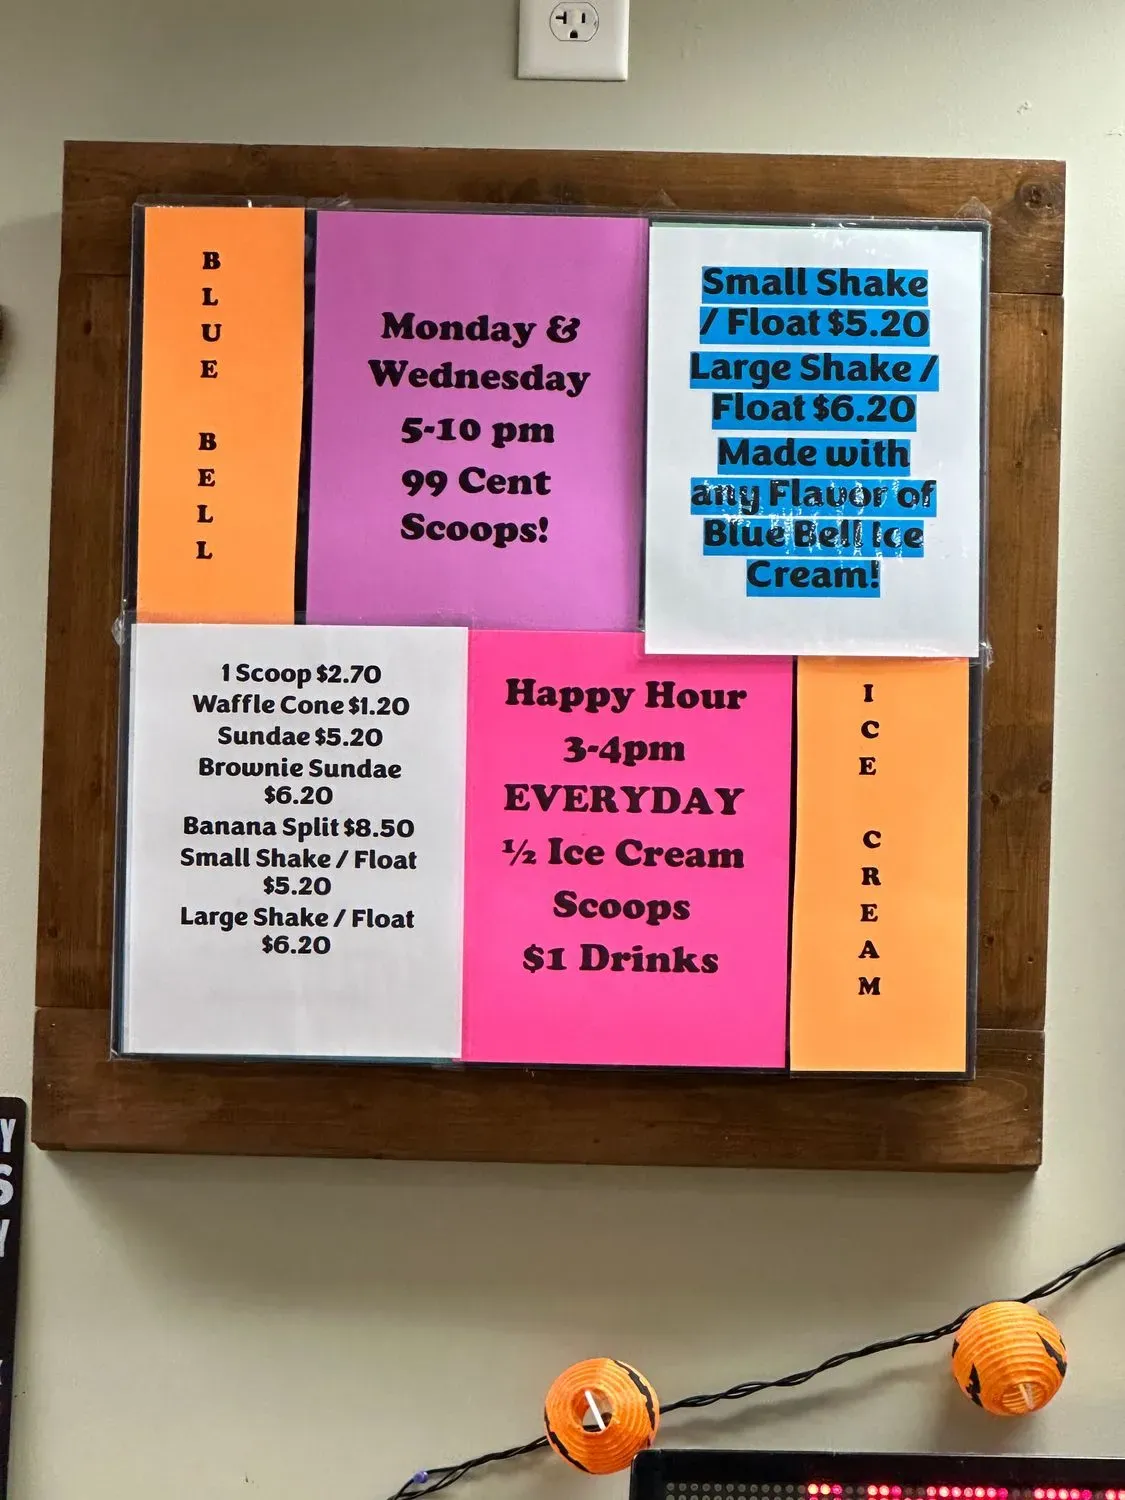 BLUE BELL
Monday &
Wednesday
5-10 pm
99 Cent
Scoops!
Small Shake
/ Float $5.20
Large Shake /
Float $6.20
Made with
any Flavor of
Blue Bell Ice
Cream!
1 Scoop $2.70
Waffle Cone $1.20
Sundae $5.20
Brownie Sundae
$6.20
Banana Split $8.50
Small Shake / Float
$5.20
Large Shake / Float
$6.20
Happy Hour
3-4pm
EVERYDAY
½ Ice Cream
Scoops
$1 Drinks
ICE CREAM
Y
S
Y